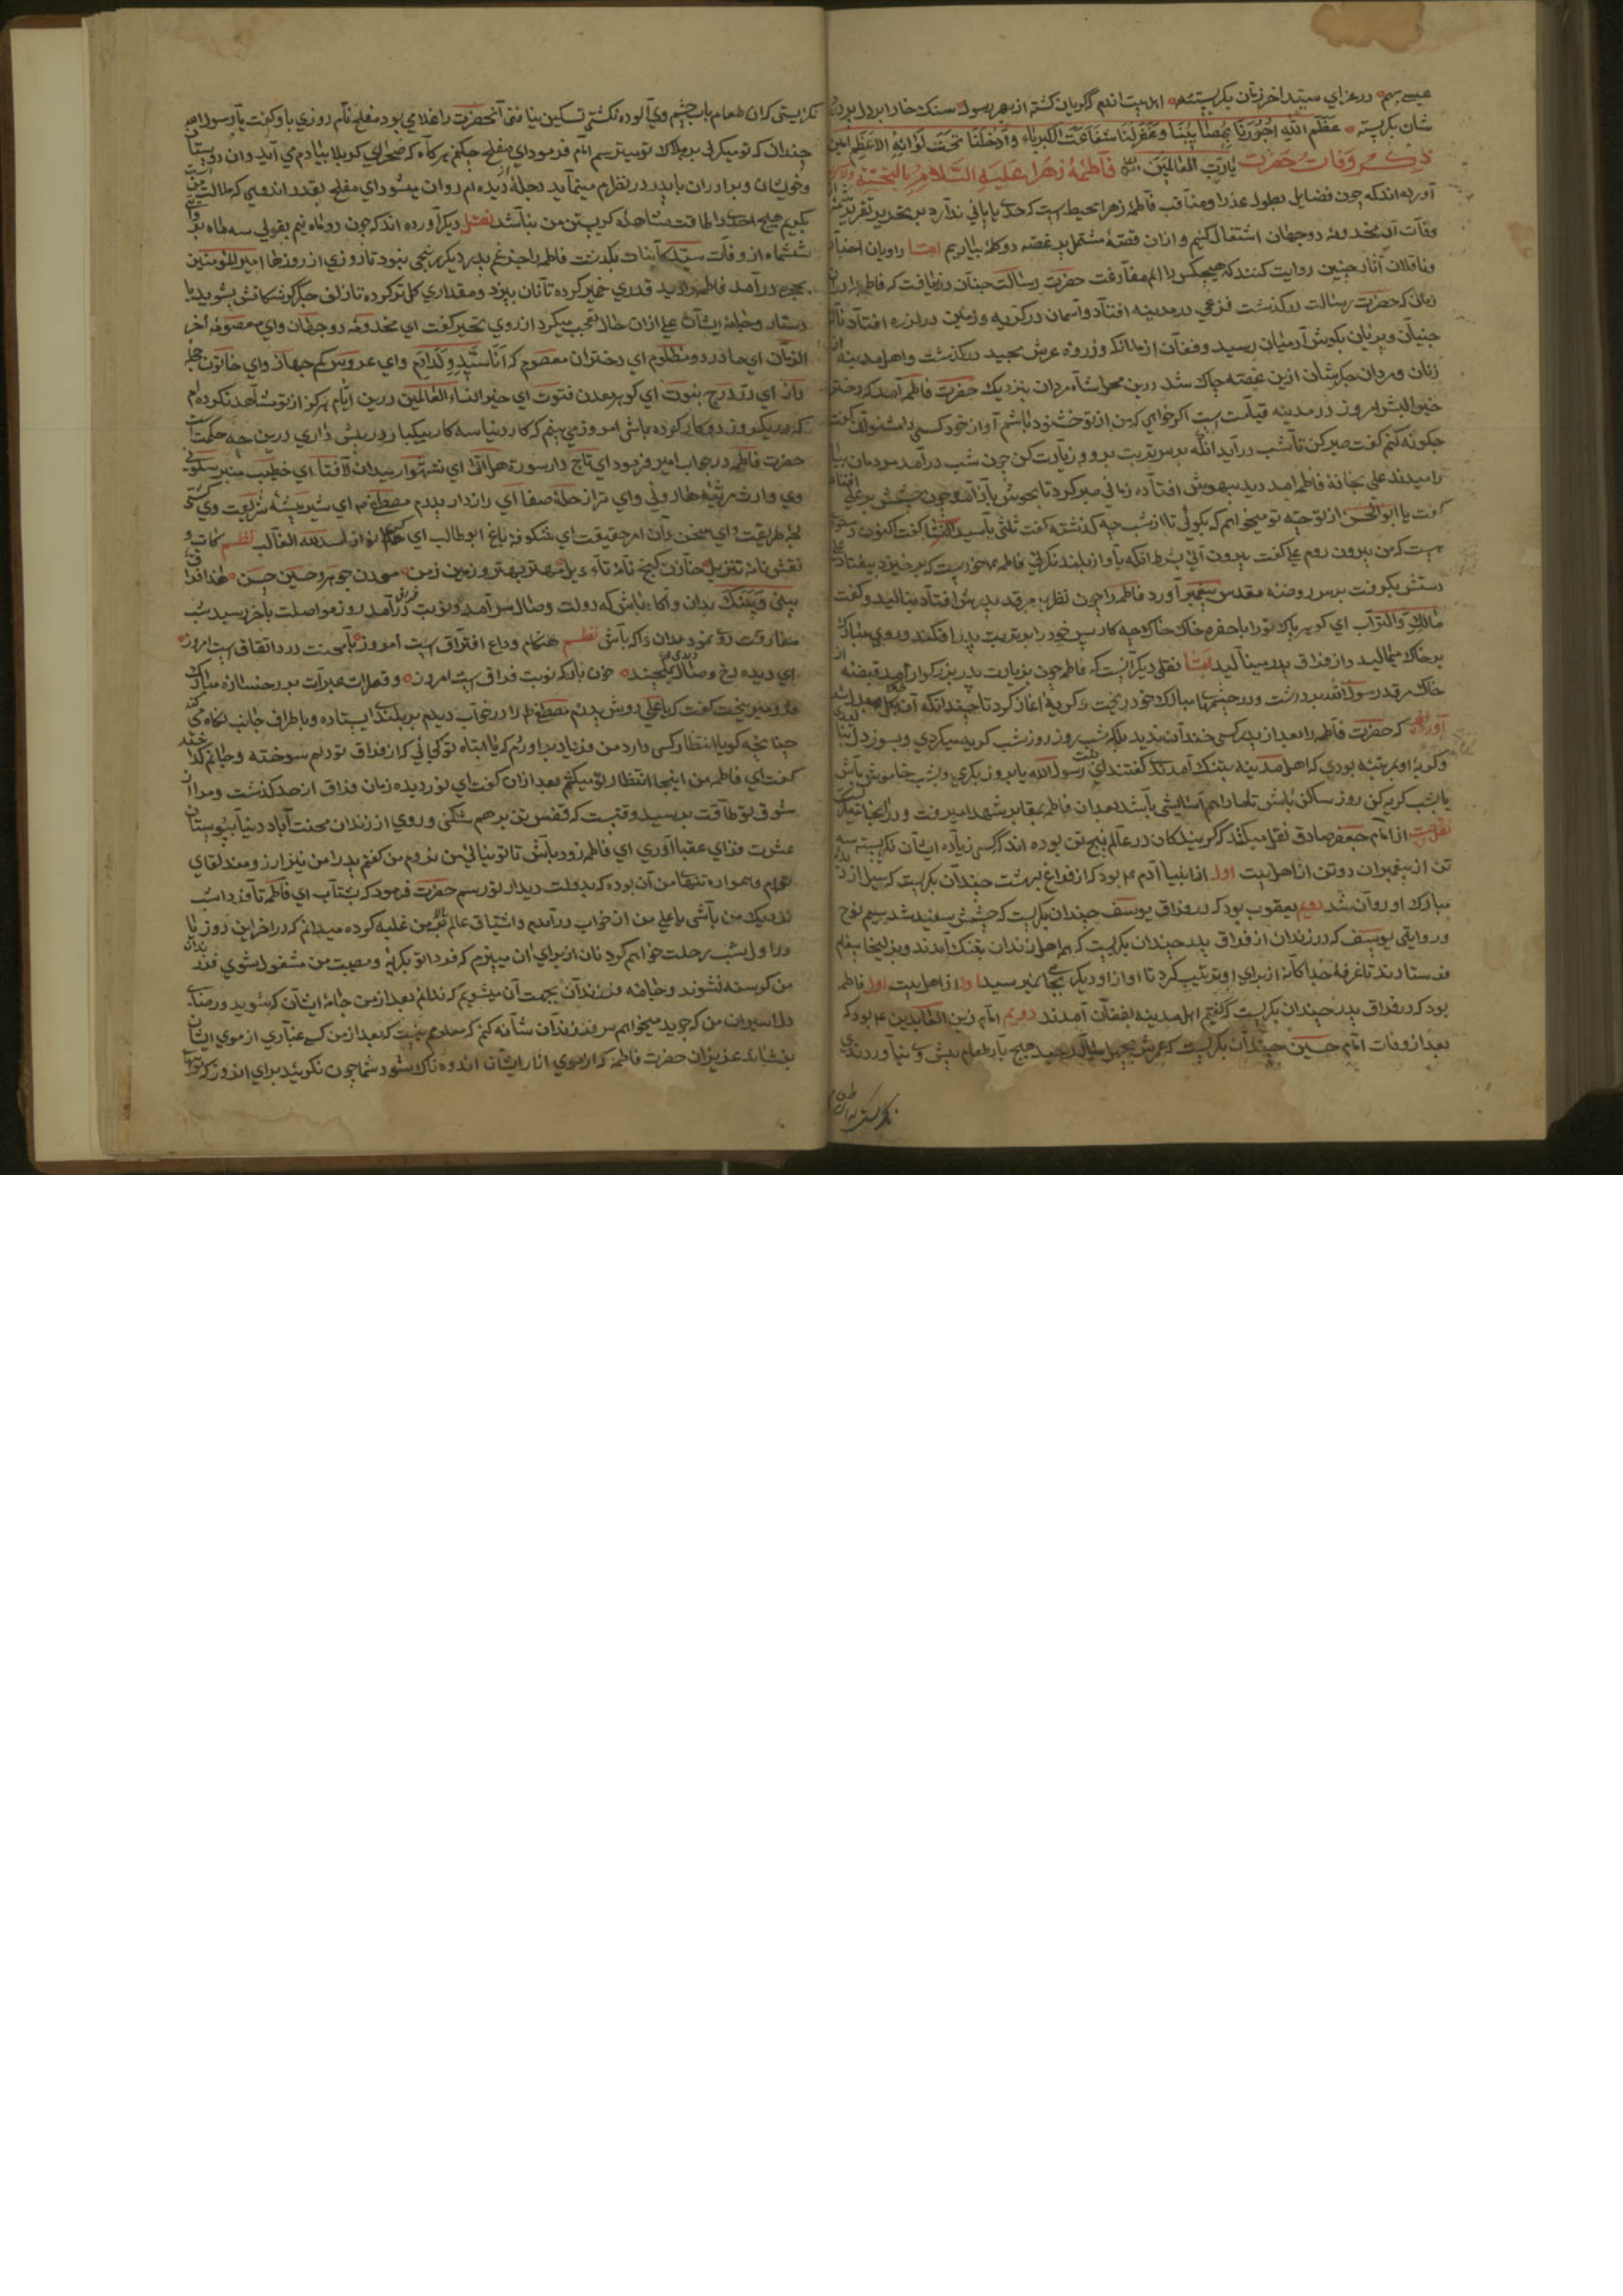 عیسی بهم در عزای سید اخر زمان بکریسته اهلبیت اندم که کریان کشته از بهر رسول سنک خارا بر دل پر درد
شان بکریسته عَظَّمَ اللهُ اُجُورَنَا بِمُصَائِبِنَا وَغَفَرلَنَا شَفَاعَت الکبریاء وَاَدخِلنَا تحت لوائه الاعظم امین
یارب العالمین ذکر وفات حضرت فاطمهٔ زهرا علیه السلام بالتحیة
آورده اند که چون فضایل بطول عذرا و مناقب فاطمهٔ زهرا بحیطیست که حدی پایانی ندارد بر تحدیر تقریر
وفات آن مخدومهٔ دوجهان اشتغال کنیم و ازان قصهٔ مشتمل بر غصه دو کلمه بیاریم امّا راویان اخبار
و ناقلان آثار چنین روایت کنند که هیچکس را الم مفارقت حضرت رسالت چنان در نیافت که فاطمه را دران
زمان که حضرت رسالت درکذشت فزعی در مدینه افتاد و اسمان در کریه و زمین در لرزه افتاد ناله
جنیان و پریان بکوش آدمیان رسید و فغان از ملائکه و زروه عرش مجید درکذشت و اهل مدینه از
زنان و مردان جکرشان ازین غصه چاک شد درین محل شاه مردان بنزدیک حضرت فاطمه آمد که دختر
خیر البشر امروز در مدینه قیامت است اکر خواهی که من از تو خشنود باشم آواز خود کسی را مشنوان کفت
چکونه کنم کفت صبر کن تا شب در آید انکه بر سر تربت برو و زیارت کن چون شب درآمد مردمان بیا
رامیدند علی بخانهٔ فاطمه امد دید بیهوش افتاده زمانی صبر کرد تا بهوش بازآمد و چون چشمش بر علی افتاد
کفت یا ابو الحسن از تو چه تو میخواهم که بکوئی تا از شب چه کذشته کفت ثلثی یا سیدة النسا کفت اکنون دستوری
هست که من بیرون روم علی کفت بیرون آئی بشرط انکه بآواز بلند نکرئی فاطمه میخواست که برخیزد بیفتاد علی
دستش بکرفت بر سر روضهٔ مقدس پیغمبر آورد فاطمه را چون نظر بر مرقد پدرش افتاد بنالید و کفت
مالک والتراب ای کوهر پاک تو را با حفره خاک چه کار پس خود را بر تربت پدر افکند و روی مبارک
بر خاک میمالید و از فراق پدر مینالید امّا نقلی دیکر آنست که فاطمه چون بزیارت پدر بزرکوار امد قبضهٔ از
خاک مرقد رسول الله برداشت و در چشمهای مبارک خود ریخت و کریه اغاز کرد تا چندانکه آن
آورده اند که حضرت فاطمه را بعد از پدر کسی خندان ندید بلکه شب و روز کریه میکردی و بسوز دل
و کریهٔ او بمرتبهٔ بودی که اهل مدینه بتنک آمدند کفتند ای بنت رسول الله یا بروز بکری و بشب خاموش باش
یا بشب کریه کن روز ساکن باش تا مارا هم آسایشی باشد بعد ازان فاطمه بمقابر شهدا میرفت و در آنجا
نقلست از امام جعفر صادق نقل میکند که کریندکان در عالم پنج تن بوده اند که کسی زیاده ایشان نکریسته سه
تن از پیغمبران دو تن از اهلبیت اول از انبیا آدم ع بود که از فراغ بهشت چندان بکریست که سیل از
مبارک او روان شد دویم یعقوب بود که در فراق یوسف چندان بکریست که چشمش سفید شد سیم نوح
و روایتی یوسف که در زندان از فراق پدر چندان بکریست که هم اهل زندان بتنک آمدند و بزلیخا پیغام
فرستادند تا غرفهٔ جداکانه از برای او ترتیب کرد تا اواز او دیکر بجائی نیر سید امّا از اهل بیت اول فاطمه
بود که در فراق پدر چندان بکریست که کفتیم اهل مدینه بفغان آمدند دویم امام زین العابدین ع بود که
بعد از وفات امام حسین چندان بکریست که عمرش بچهل سال رسید هیچ بار طعام پیش وی نیاوردندی
نکریستی که ان طعام
نکریستی که ان طعام باب چشم وی آلوده نکشتی تسکین نیافتی آنحضرت را غلامی بود مفلح نام روزی باو کفت یا بن رسول الله
چندان که تو میکری بر هلاک تو میترسم امام فرمود ای مفلح چکنم هرکاه که صحرای کربلا بیادم می آید وان
و خویشان و برادران با پدر در نظرم مینماید دجلهٔ از دیده ام روان میشود ای مفلح بقدر اندوهی که مراست
بکریم هیچ احدی را طاقت مشاهدهٔ کریستن من نباشد نقل دیکر آورده اند که چون دو ماه نیم بقولی سه ماه
ششماه از وفات سید کاینات بکذشت فاطمه را جز غم پدر دیکر رنجی نبود تا روزی از روزها امیر المؤمنین
بحجره درآمد فاطمه را دید قدری خمیر کرده تا نان بپزد و مقداری کل تر کرده تا زلف جکرکوشکانش بشوید با
دستار و جامهٔ ایشان علی ازان حال تعجب میکرد از روی تحیر کفت ای مخدومهٔ دوجهان وای معصومهٔ اخر
الزمان ای مادر دو مظلوم ای دختران معصوم که انا سید ولد ادم وای عروس جهان وای خاتون
راز ای در درج نبوت ای کوهر معدن فتوت ای خیر النساء العالمین درین ایام هرکز از تو مشاهد نکرده ام
که در یکروز دو کار کرده باشی امروز می بینم که کار دنیا سه کار بیکبار در پیش داری درین چه حکمت است
حضرت فاطمه در جواب امیر فرمود ای تاج دار سورهٔ هل اتی ای شهسوار میدان لا فتا ای خطیب منبر سلونی
وی وارث مرتبهٔ هارونی وای تراز حلهٔ صفا ای رازدار پدرم مصطفی ای شیر بیشهٔ شریعت وی کشتی
لجهٔ طریقت وای سخن دان امر حقیقت ای شکوفهٔ باغ ابوطالب ای اسد الله الغالب نظم
نقش نامه تنزیل خازن کنج نامهٔ تاءویل مهتر بهتر و زمین زمن معدن جوهر حسین حسن هذا فراق
بینی وبینک بدان و آکاه باش که دولت وصال بسر آمد و نوبت فراق درآمد روز مواصلت بآخر رسید شب
مفارقت روی نمود بدان و آکه باش نظم هنکام وداع افتراق است امروز با محنت درد اتفاق است امروز
ای دیده رخ وصال دیدی چند خون بار که نوبت فراق است امروز و قطرات عبرات بر رخسارهٔ مبارک
فرو میریخت کفت که یا علی دوش پدرم مصطفی را در خواب دیدم بر بلندی ایستاده و باطراف جانب نکاه می
چنانچه کویا انتظار کسی دارد من فریاد براوردم که یا ابتاه تو کجائی که از فراق تو دلم سوخته و جانم کداخته
کفت ای فاطمه من اینجا انتظار تو میکشم بعد ازان کفت ای نوردیده زمان فراق از حد کذشت و مرا ان
شوق تو طاقت برسید وقتست که قفس تن برهم شکنی و روی از زندان محنت آباد دنیا ببوستان
عشرت فزای عقبا آوری ای فاطمه زود باش تا تو نیائی من نروم من کفتم پدرا من نیز ارزومند لقای
توام و همواره تنها من آن بوده که بدولت دیدار تو رسم حضرت فرمود که بشتاب ای فاطمه تا فردا شب
نزدیک من باشی یا علی من از خواب درآمدم و اشتیاق عالم برمن غلبه کرده میدانم که در اخر این روز یا
در اول شب رحلت خواهم کرد نان از برای ان میپزم که فردا تو بکریهٔ و مصیبت من مشغول شوی فرزندان
من کرسنه نشوند و جامه فرزندان بجهت آن میشویم که ندانم بعد از من جامهٔ ایشان که شوید و رضای
دل اسیران من که جوید میخواهم سر فرزندان شانه کنم که معلوم نیست که بعد از من کسی غباری از موی ایشان
بنشاند عزیزان حضرت فاطمه که از موی انار ایشان اندوه ناک شود شما چون نکریید برای اندوز که